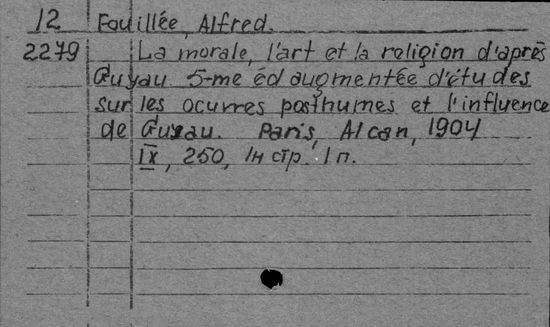 12 Fouillée, Alfred.
2279 La morale, l'art et la religion d'après
Guyau 5-me éd augmentée d'études
sur les ocuvres posthumes et l'influence
de Guyau. Paris, Alcan, 1904
IX, 250, 1н стр. 1 п.